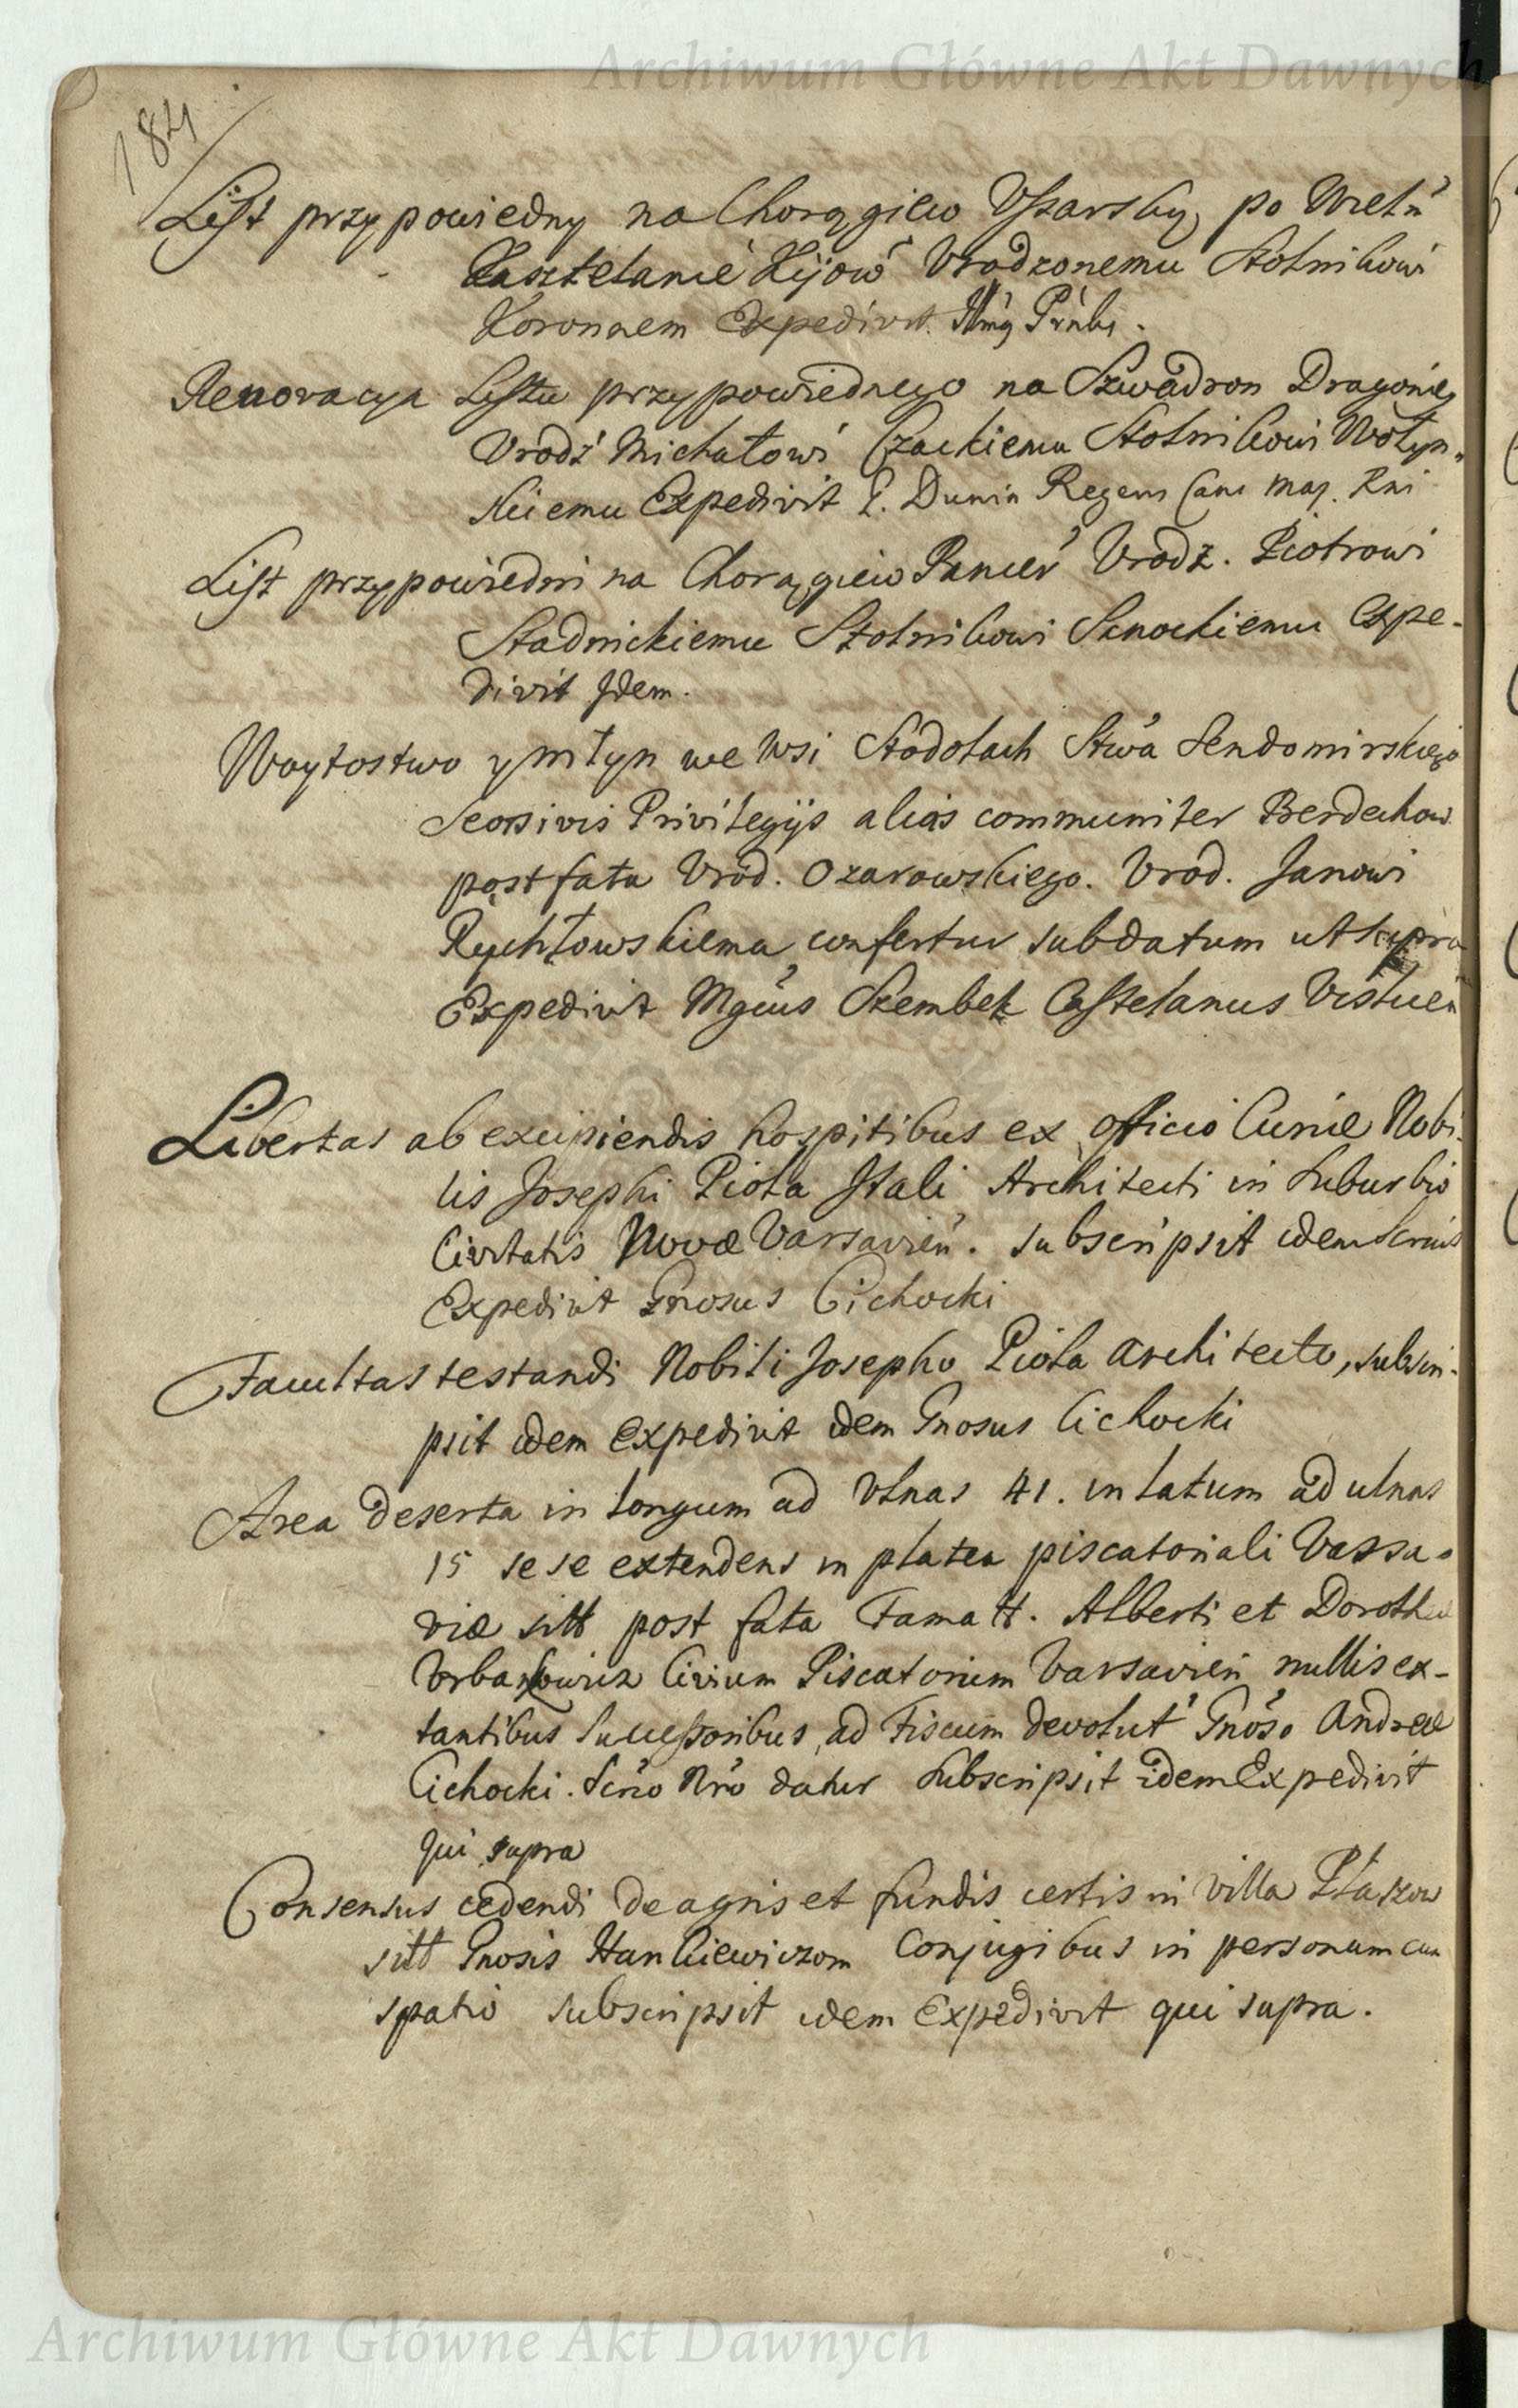 Archiwum Główne Akt Dawnych
184
List przypowiedny na Chorągiew Vssarską po Wielm̃
Kasztelanie Kijow̃ Vrodzonemu Stolnikowi
Koronnem Expedivit
Renovacya Listu przypowiednego na Szwadron Dragonię
Vrodz̃ Michałowi Czackiemu Stolnikowi Wołyn„
skiemu Expedivit G. Dunin Regens Canc Maj. Rni
List przypowiedni na Chorągiew Pancer̃ Vrodz. Piotrowi
Stadnickiemu Stolnikowi Sanockiemu Expe-
divit Idem.
Woytostwo y młyn we wsi Stodołach Stwa Sendomirskiego
Seorsivis Privilegijs alias communiter Berdechow
post fata Vrod. Ozarowskiego. Vrod. Janowi
Rychłowskiemu confertur sub datum ut supra
Expedivit Mgcus Szembek Castelanus Vislicen
Libertas ab excipiendis hospitibus ex officio Curiæ Nobi-
lis Josephi Piola Itali Architecti in Suburbio
Civitatis Novæ Varsavień. subscripsit idem Srmus
Expedivit Gnosus Cichocki
Facultas testandi Nobili Josepho Piola architecto, subscri-
psit idem expedivit idem Gnosus Cichocki
Area deserta in longum ad Vlnas 41. in latum ad ulnas
15 se se extendens in platea piscatoriali Varsa-
viæ sitt post fata Famatt. Alberti et Dorotheæ
Urbankowicz Civium Piscatorum Varsavień nullis ex-
tantibus Successoribus, ad Fiscum devolut̃ Gnoso Andreæ
Cichocki. Scrio Nro datur subscripsit idem Expedivit
qui supra
Consensus cedendi de agris et fundis certis in villa Płaszow
sitt Gnosis Hankiewiczom Conjugibus in personam cum
spatio subscripsit idem Expedivit qui supra.
Archiwum Główne Akt Dawnych